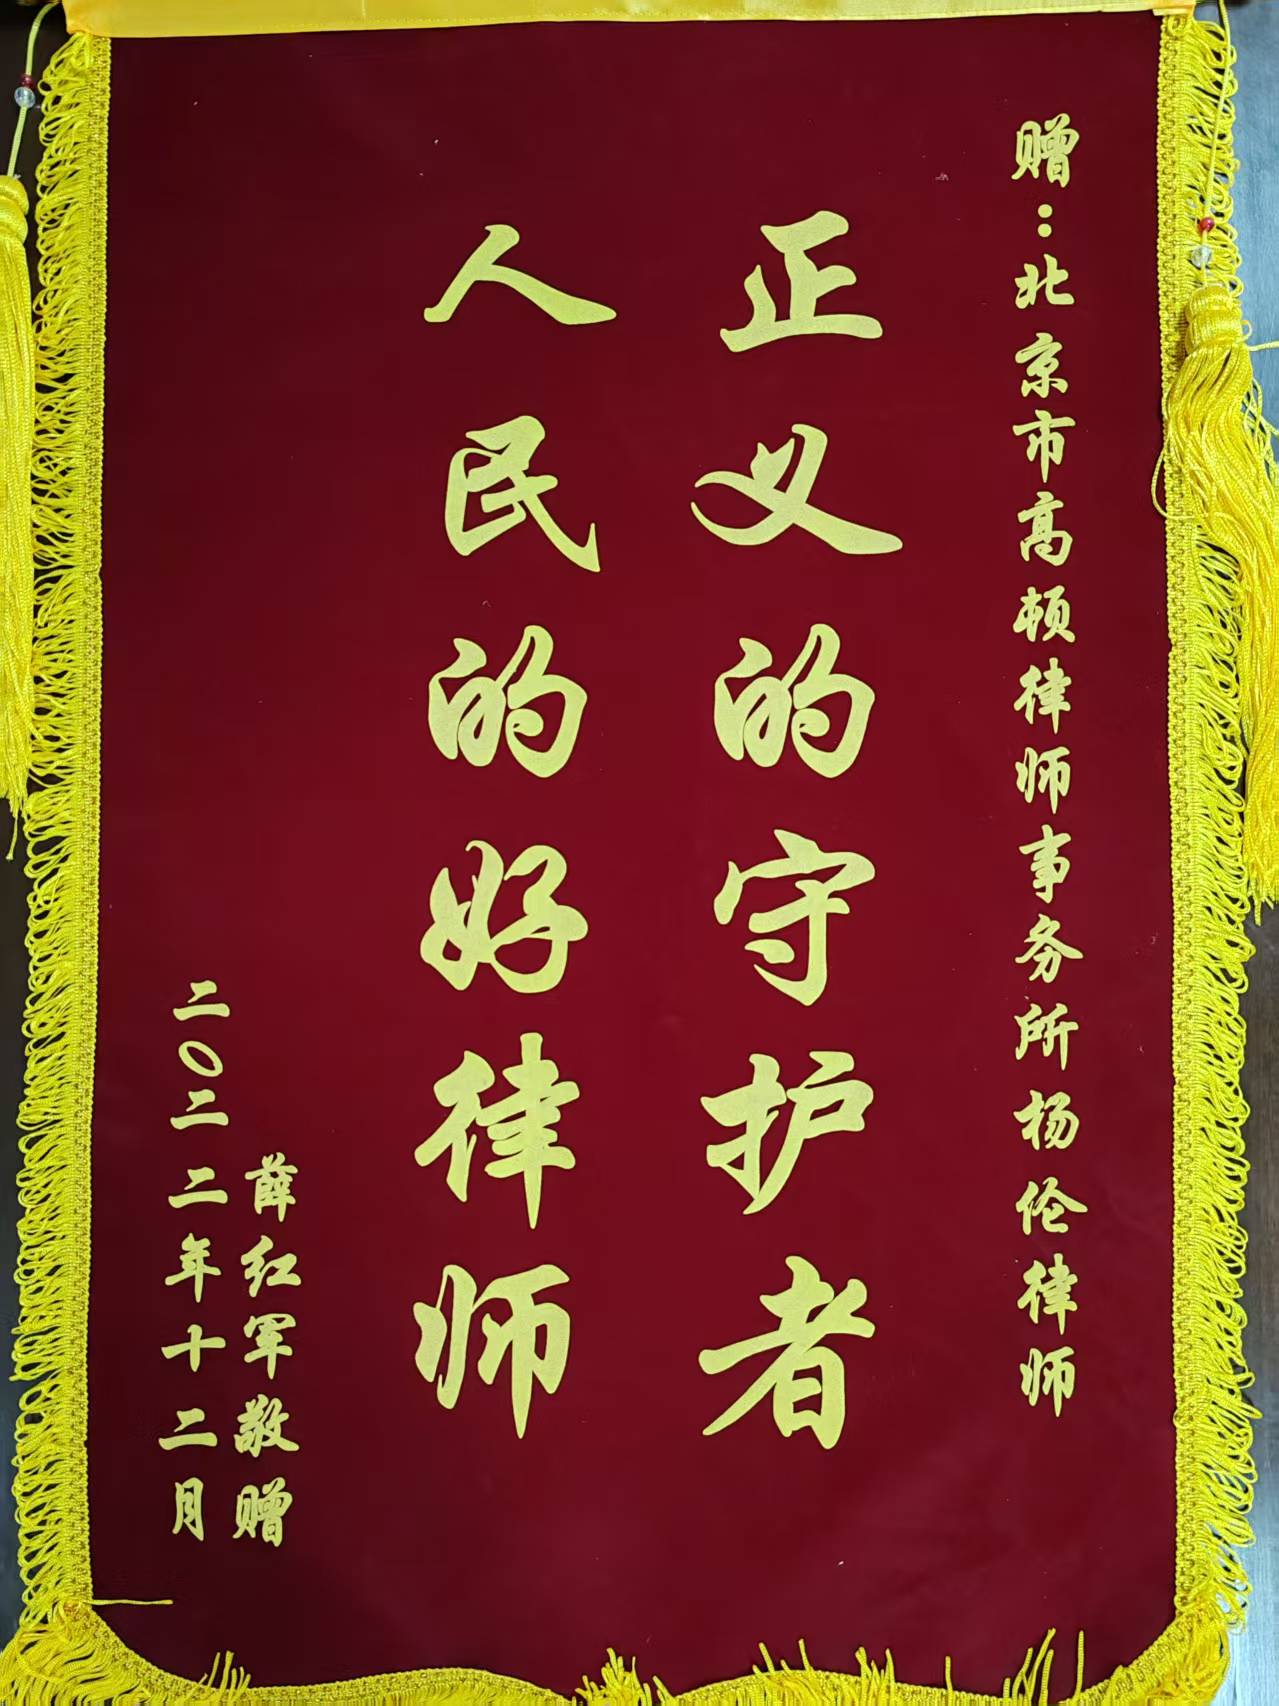 赠：北京市高顿律师事务所杨伦律师
正义的守护者
人民的好律师
薛红军敬赠
二〇二二年十二月